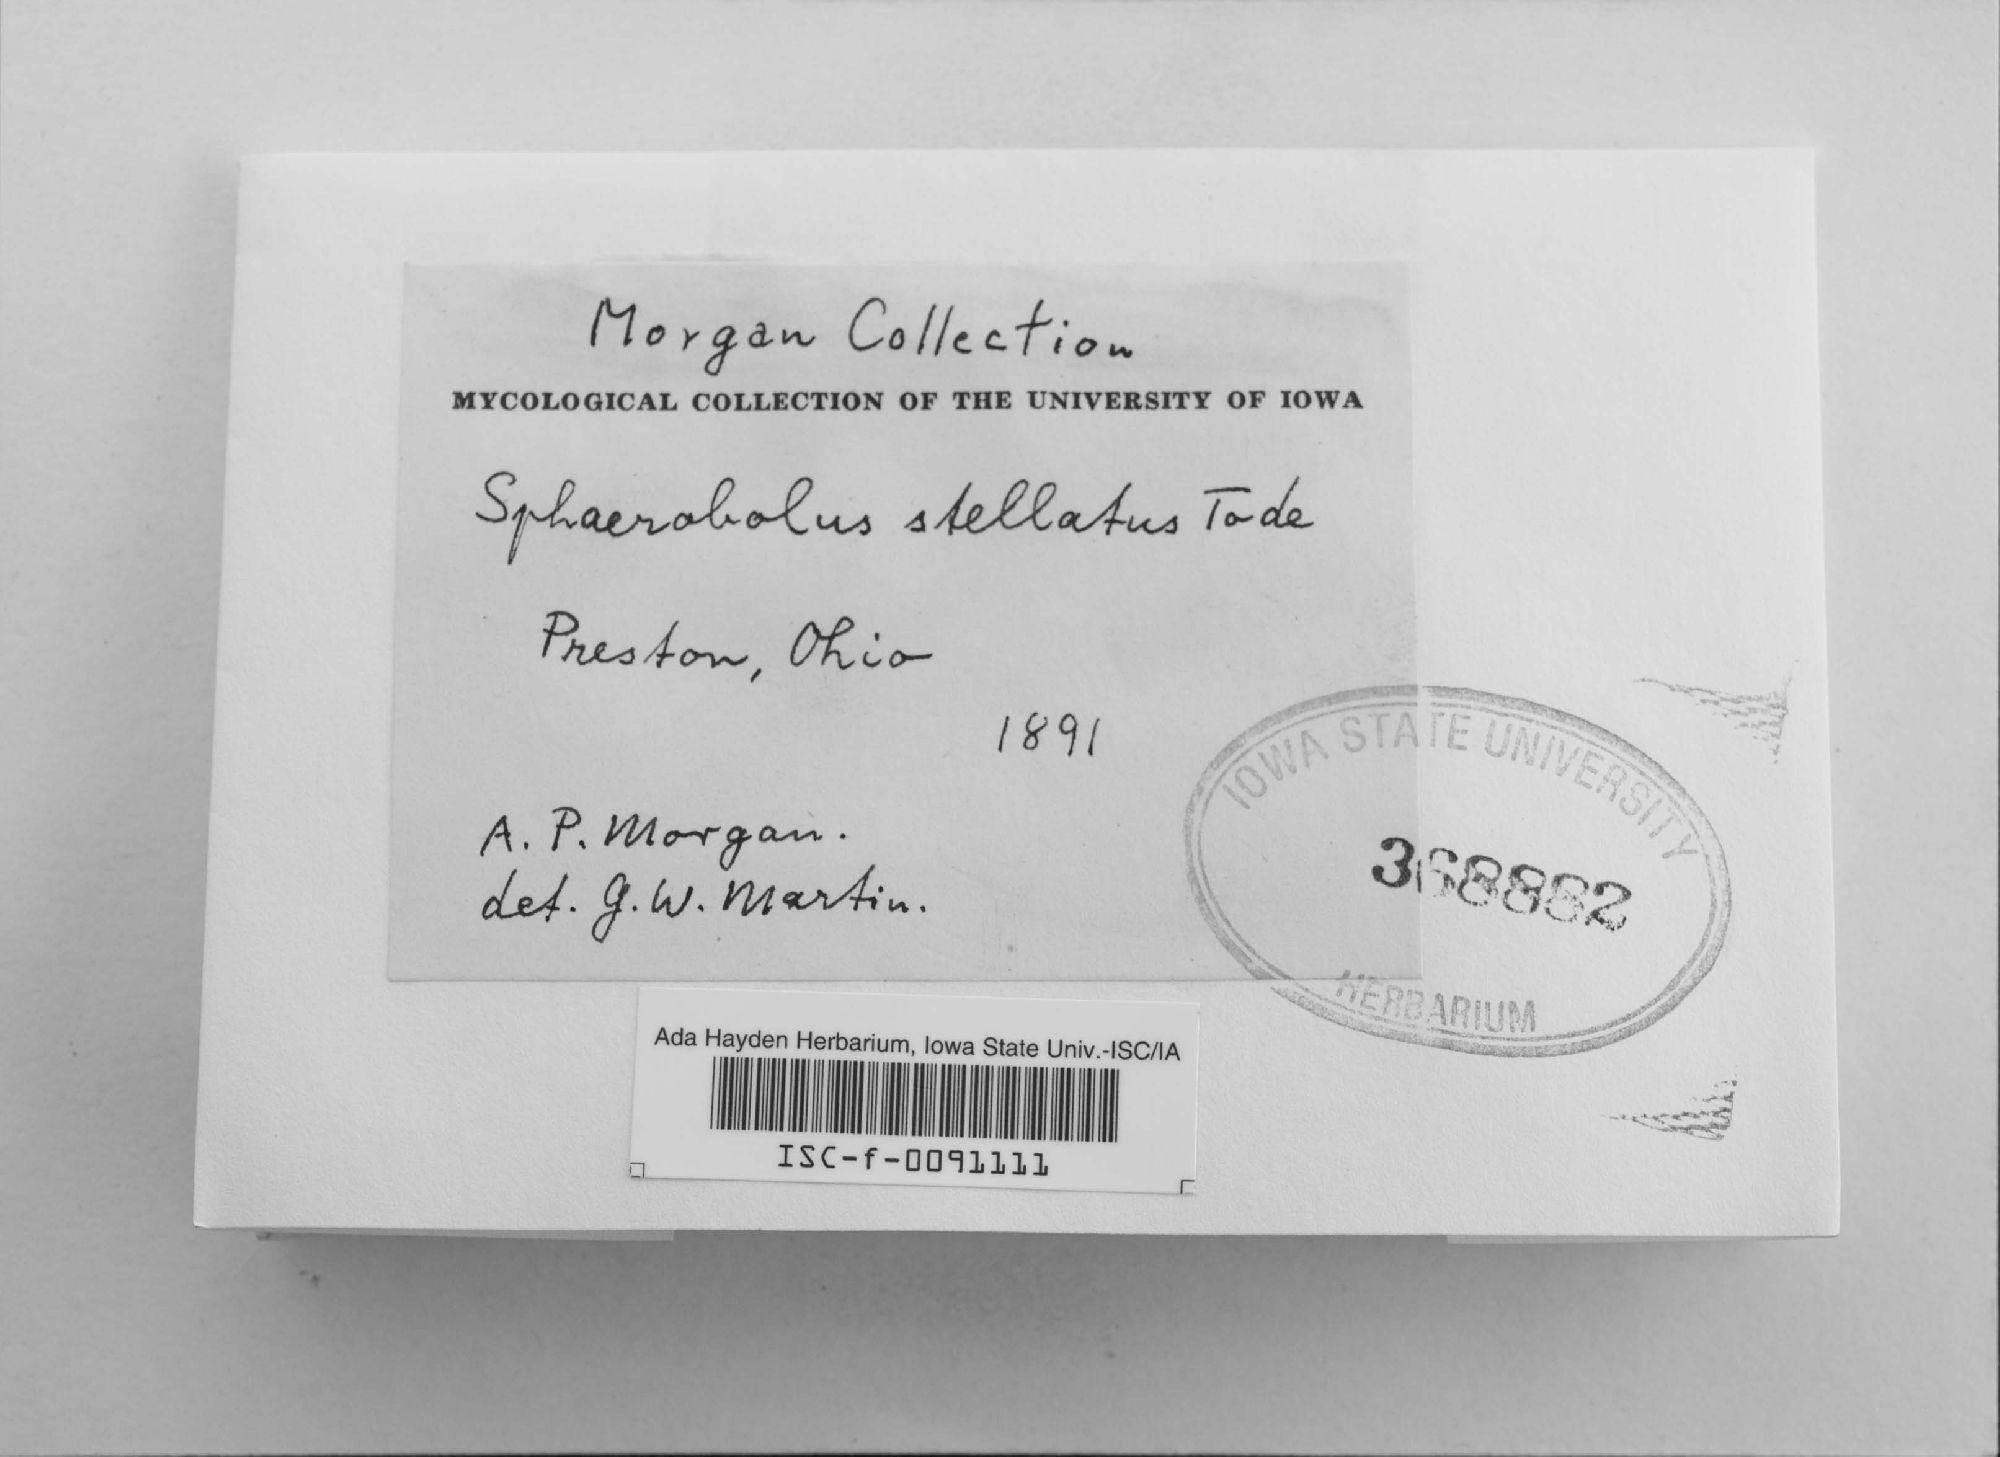 Morgan Collection
MYCOLOGICAL COLLECTION OF THE UNIVERSITY OF IOWA
Sphaerobolus stellatus Tode
Preston, Ohio
1891
A. P. Morgan.
det. G. W. Martin.
IOWA STATE UNIVERSITY
368882
HERBARIUM
Ada Hayden Herbarium, Iowa State Univ.-ISC/IA
ISC-f-0091111